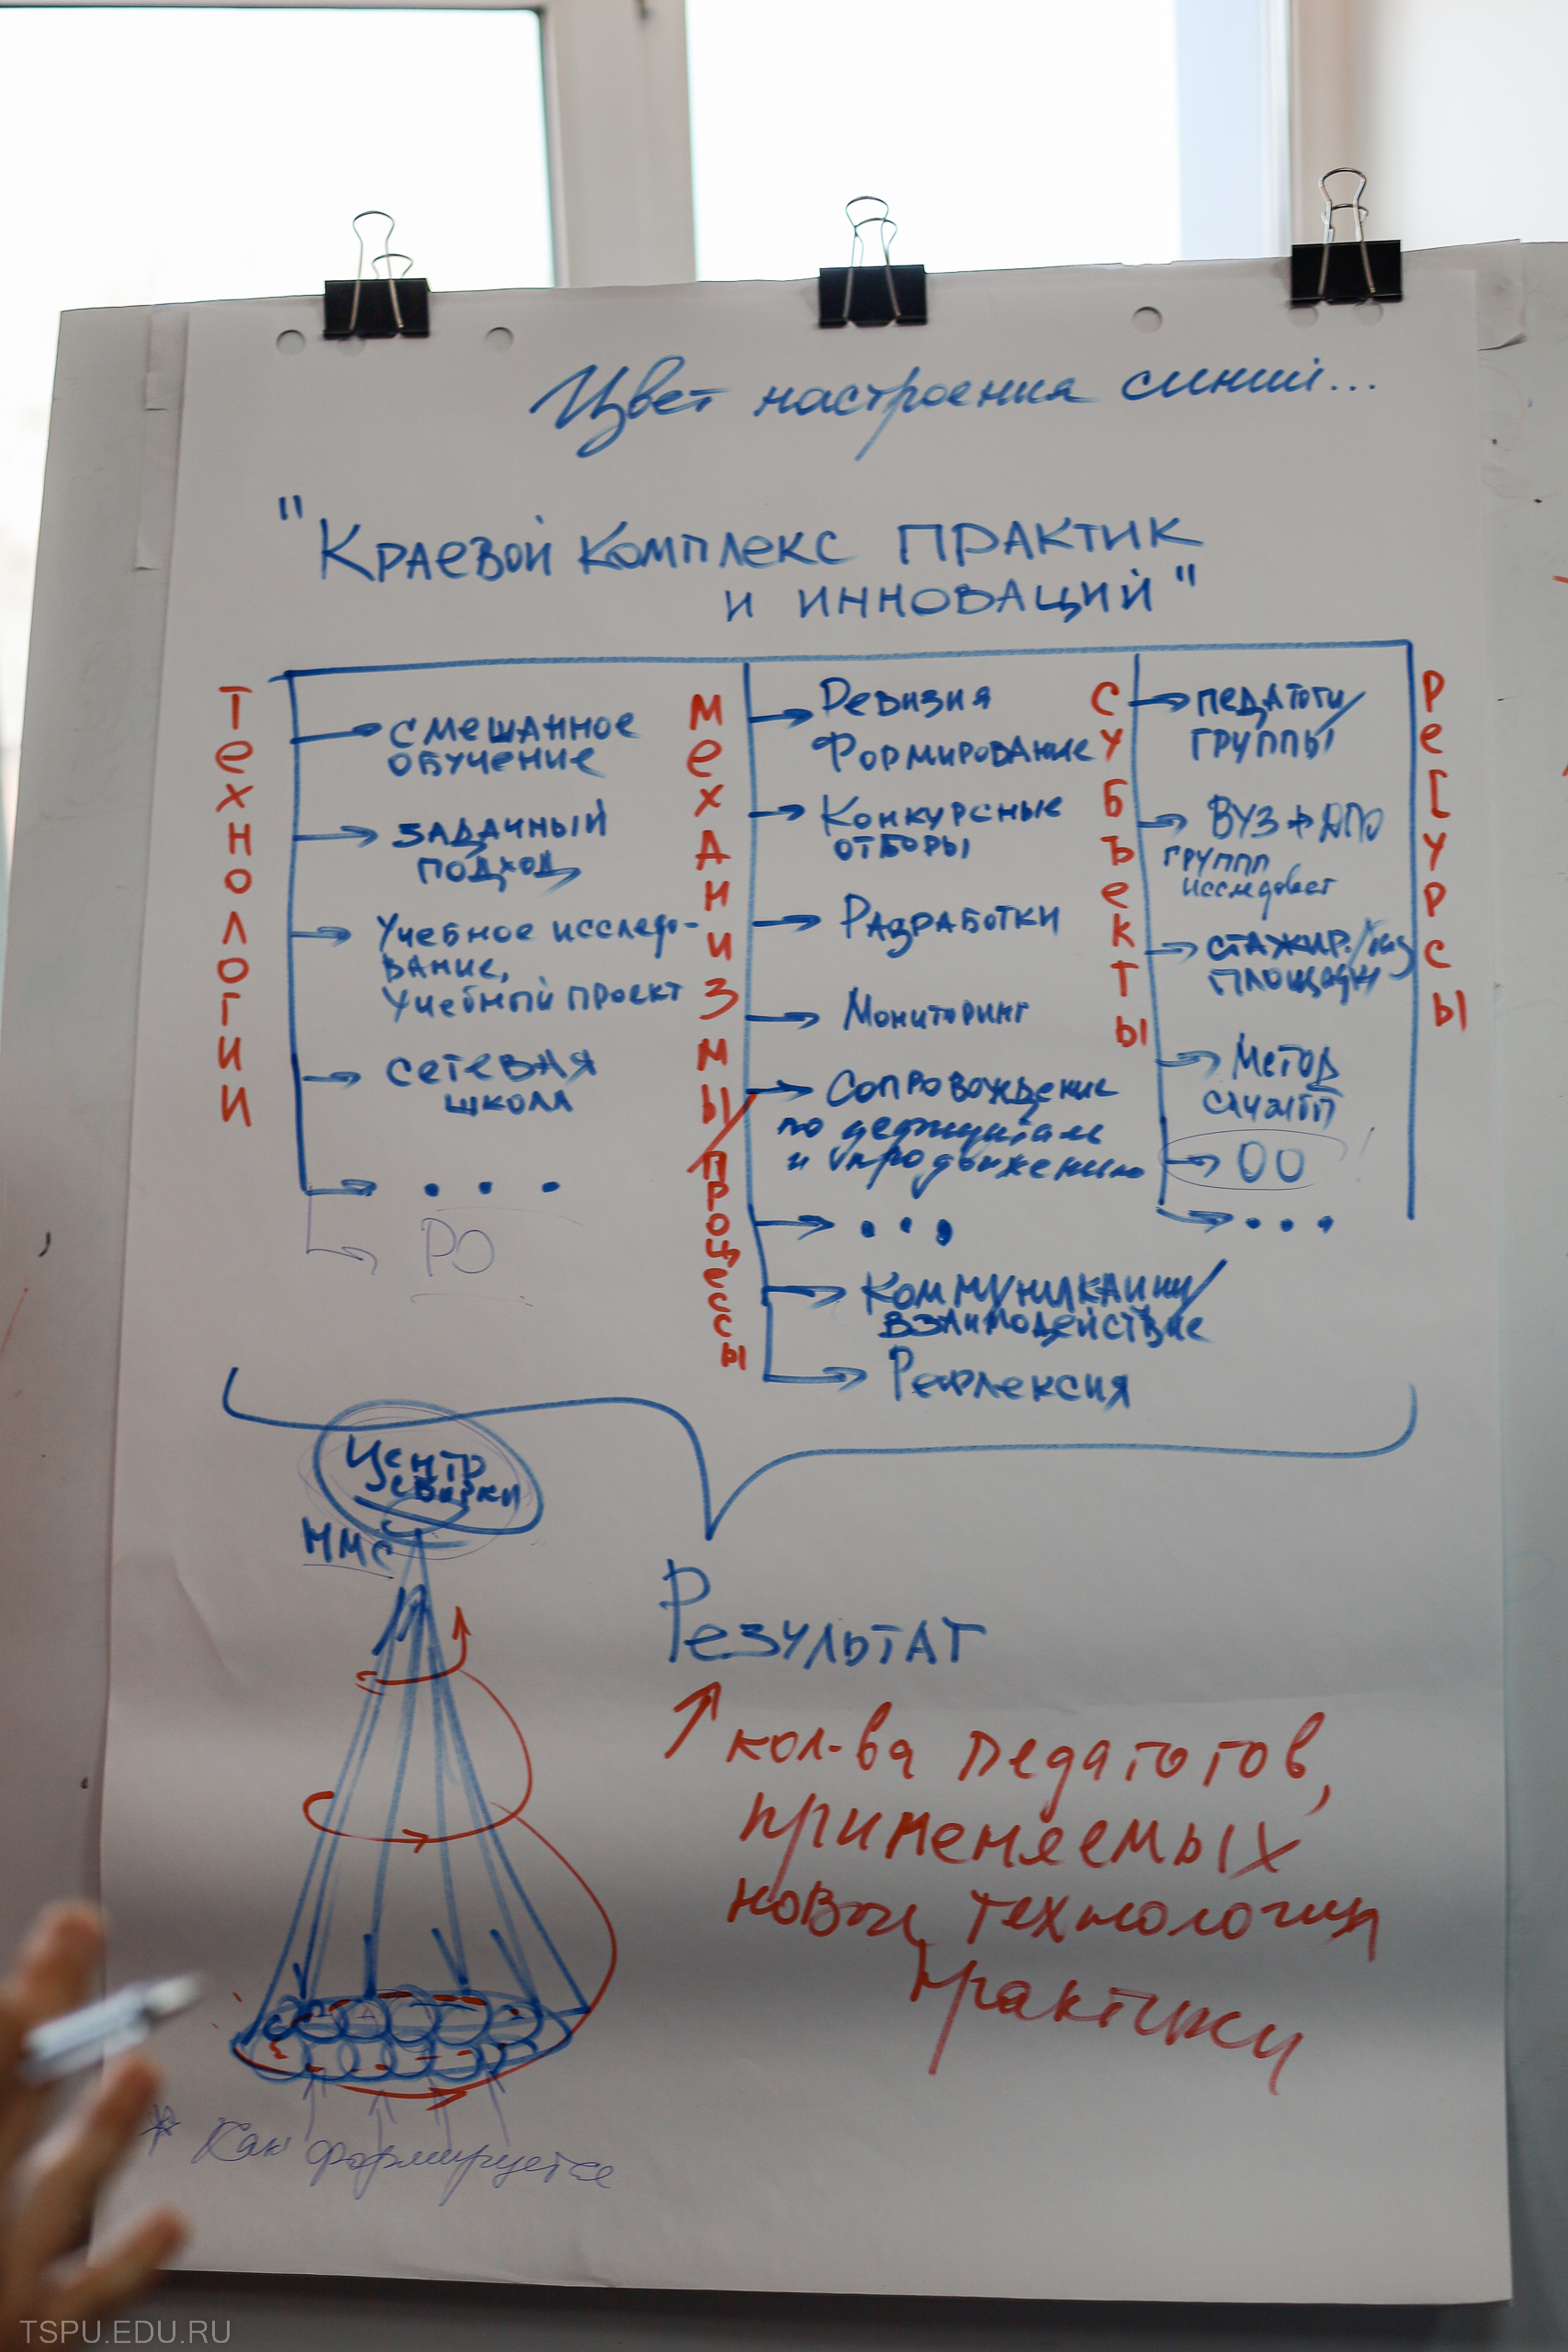 Цвет настроения синий...
"Краевой комплекс практик
и инноваций"
Технологии
смешанное
обучение
задачный
подход
Учебное исследо-
вание,
Учебный проект
сетевая
школа
...
РО
Механизмы/процессы
Ревизия
Формирование
Конкурсные
отборы
Разработки
Мониторинг
Сопровождение
по дефицитам
и продвижению
...
Коммуникации/
взаимодействие
Рефлексия
Субъекты
педагоги/
группы
ВУЗ + ДПО
групп
исследоват
стажир./
площадки
Метод
службы
ОО
...
Ресурсы
Центр
сборки
ММС
Результат
↑ кол-ва педагогов,
применяемых
новые технологии
практики
* Как формируется
TSPU.EDU.RU